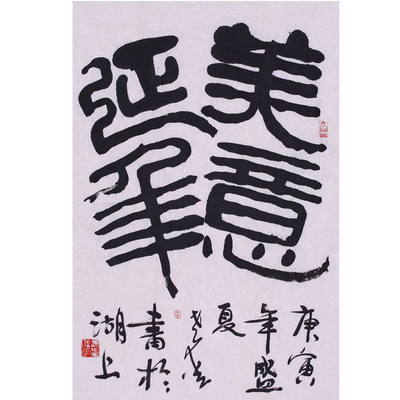 美意
延年
庚寅
年盛
夏
書於
湖上